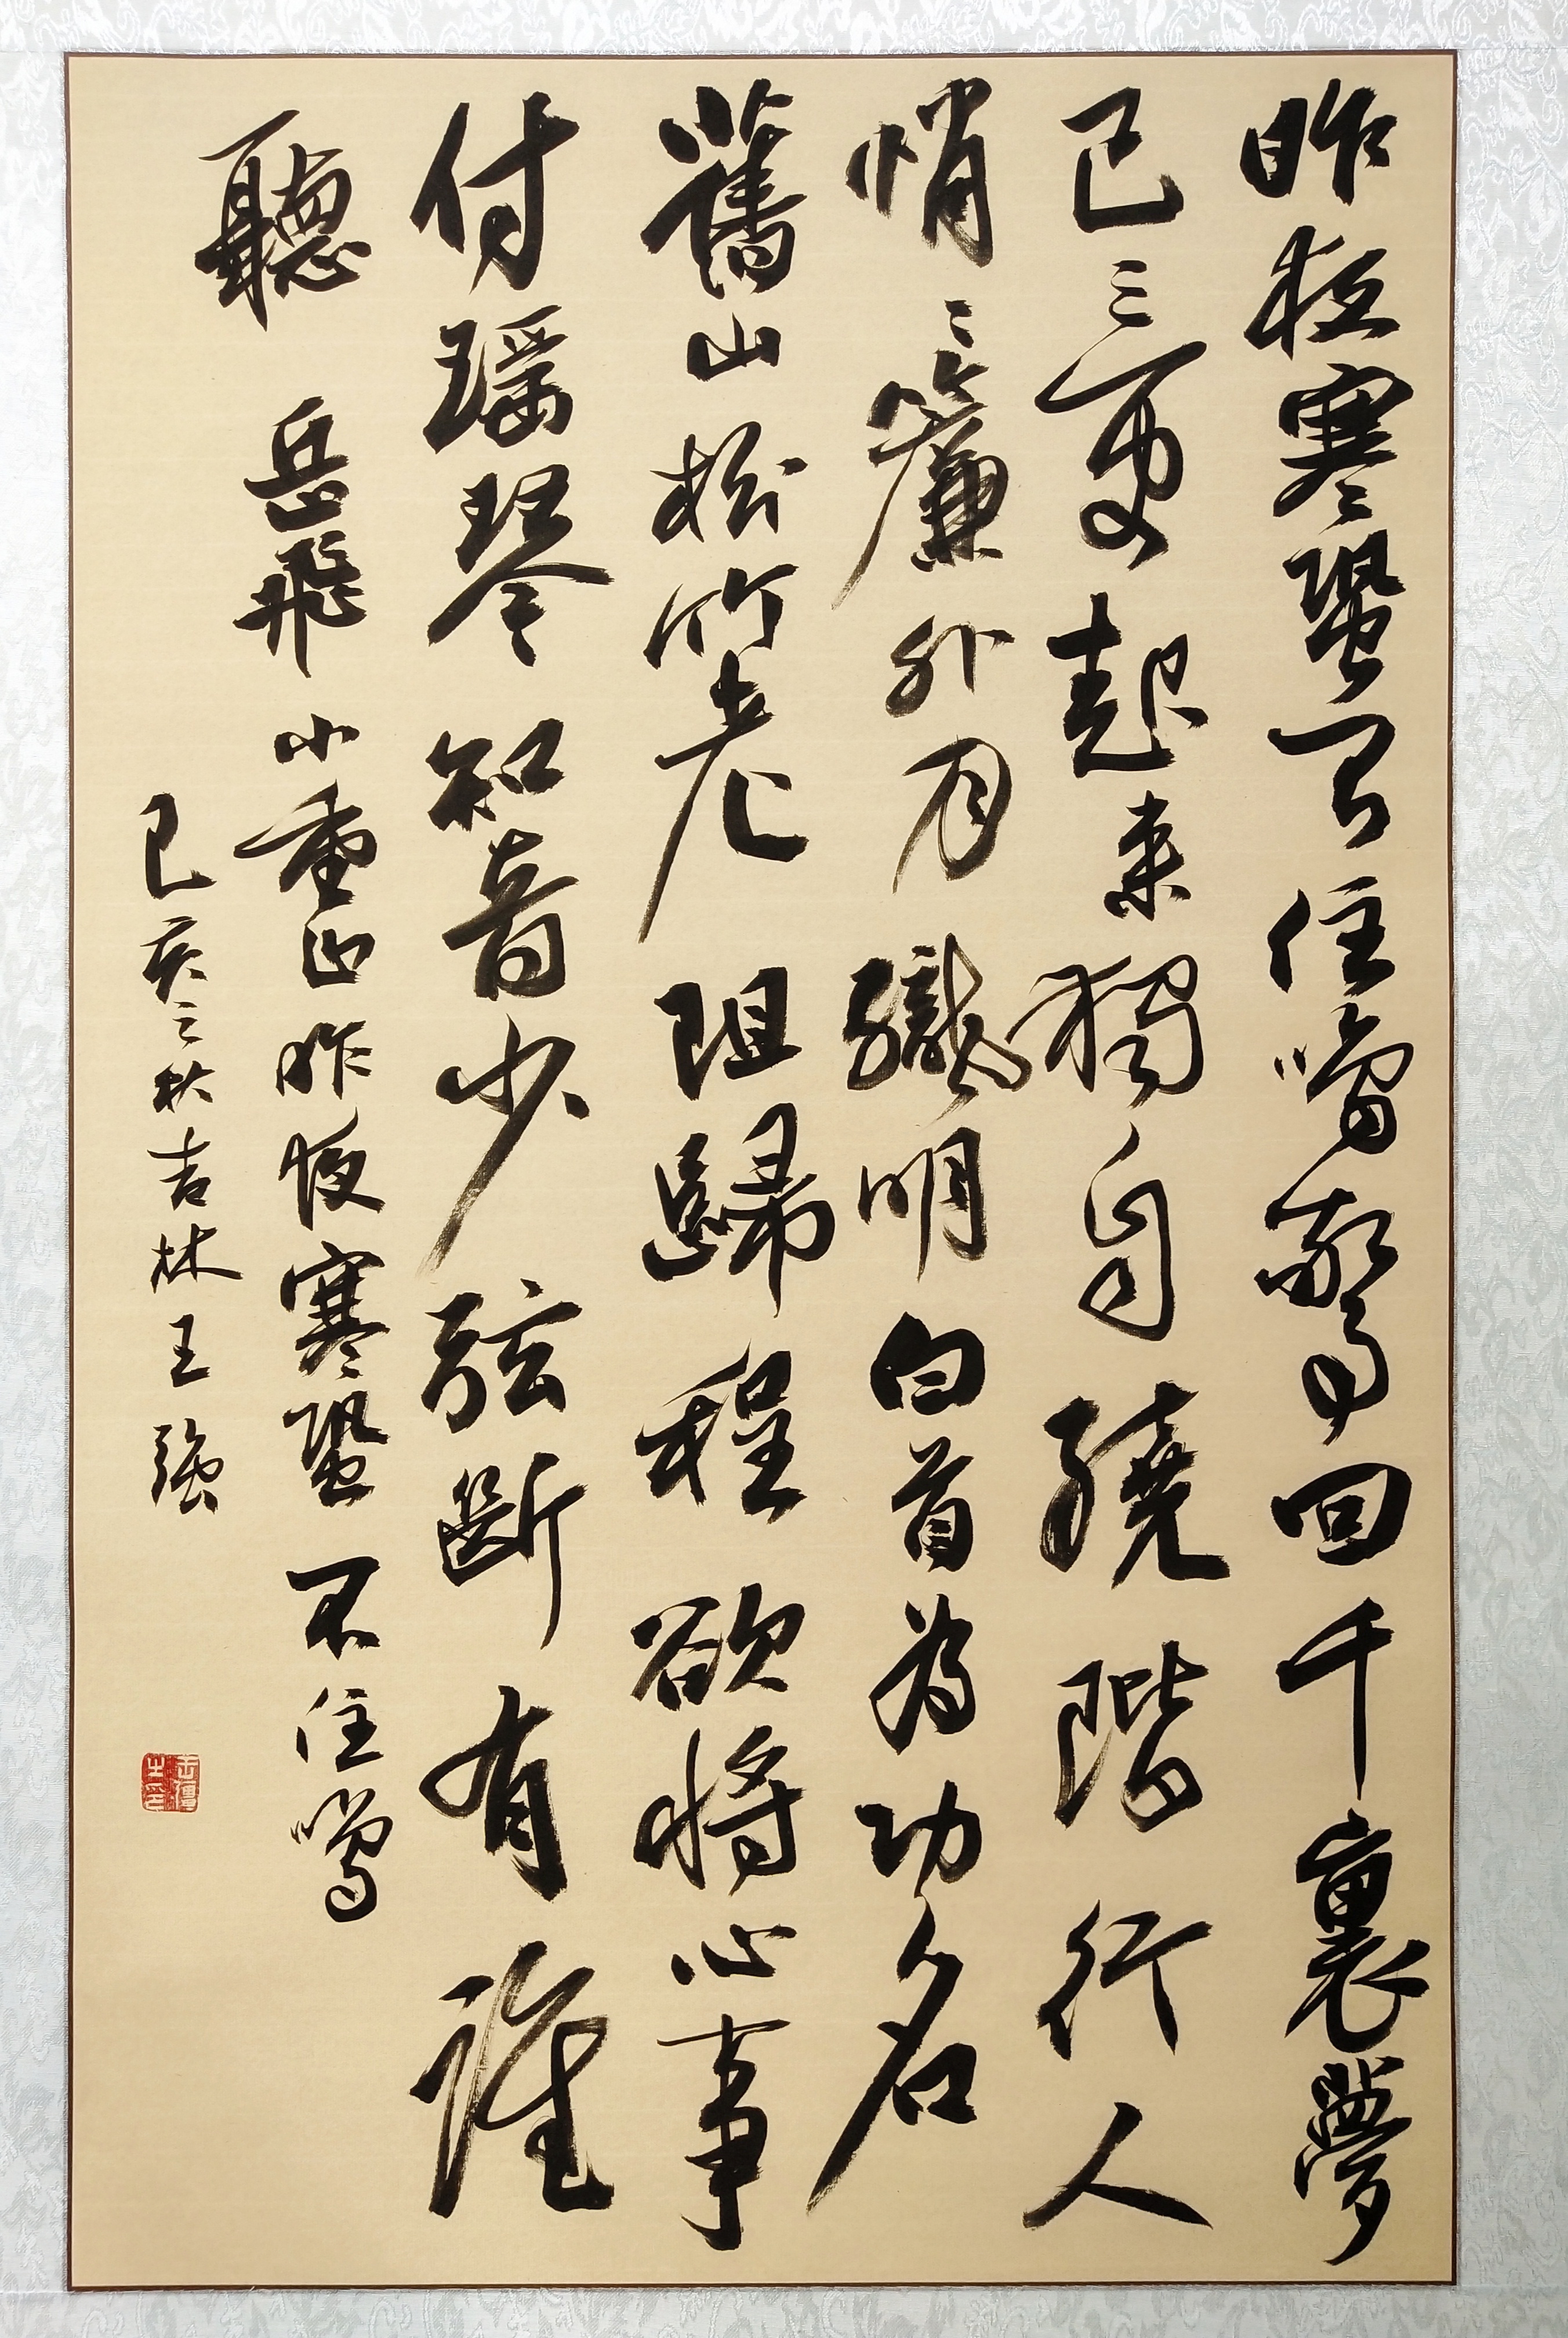 昨夜寒蛩不住鳴驚回千裏夢
已三更起来獨自繞階行人
悄〻簾外月朧明白首為功名
舊山松竹老阻歸程欲將心事
付瑶琴知音少弦斷有誰
聽 岳飛 小重山昨夜寒蛩不住鳴
己亥之秋吉林王強